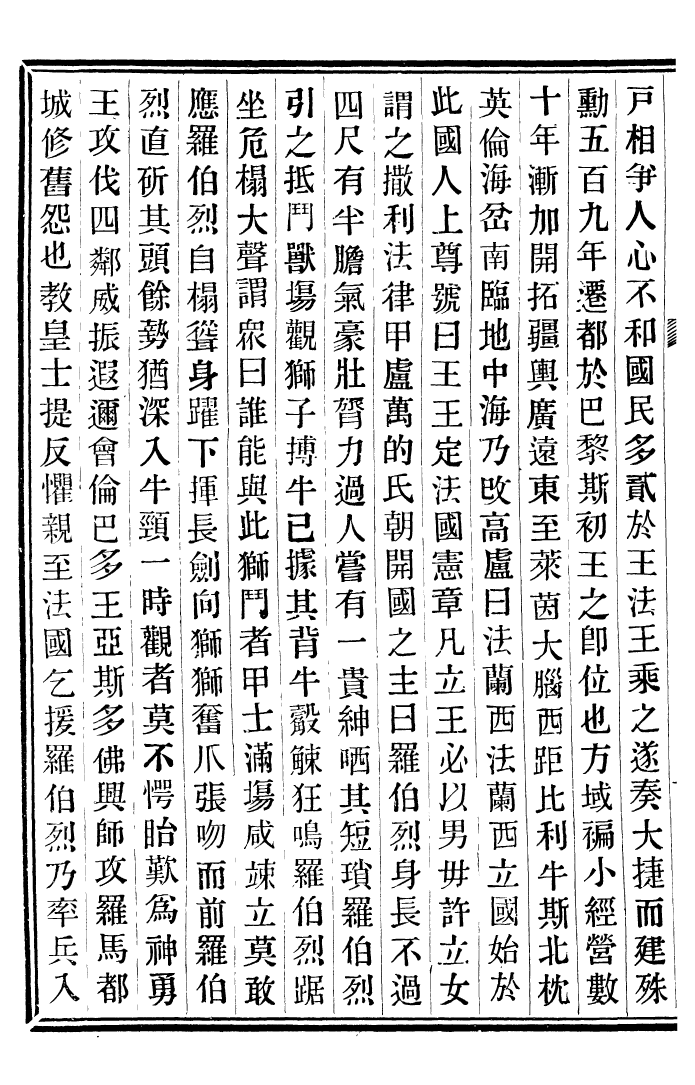 戸相爭人心不和國民多貳於王法王乘之遂奏大捷而建殊
勳五百九年遷都於巴黎斯初王之卽位也方域褊小經營數
十年漸加開拓疆輿廣遠東至萊茵大腦西距比利牛斯北枕
英倫海岔南臨地中海乃改高盧曰法蘭西法蘭西立國始於
此國人上尊號曰王王定法國憲章凡立王必以男毋許立女
謂之撒利法律甲盧萬的氏朝開國之主曰羅伯烈身長不過
四尺有半膽氣豪壯膂力過人嘗有一貴紳哂其短瑣羅伯烈
引之抵鬥獸塲觀獅子搏牛已據其背牛觳觫狂鳴羅伯烈踞
坐危榻大聲謂衆曰誰能與此獅鬥者甲士滿塲咸竦立莫敢
應羅伯烈自榻聳身躍下揮長劍向獅獅奮爪張吻而前羅伯
烈直斫其頭餘勢猶深入牛頸一時觀者莫不愕眙歎爲神勇
王攻伐四鄰威振遐邇會倫巴多王亞斯多佛興師攻羅馬都
城修舊怨也教皇士提反懼親至法國乞援羅伯烈乃率兵入